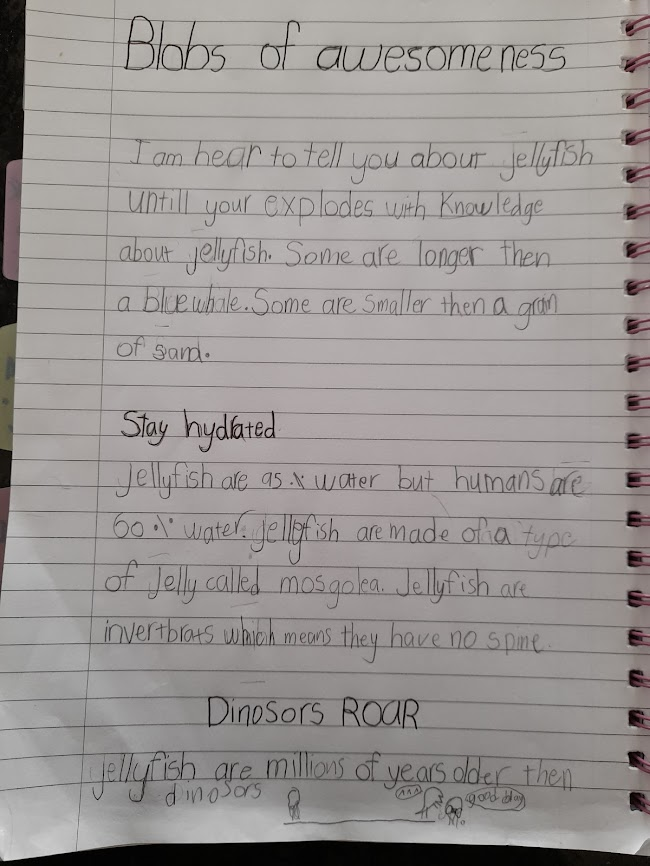 Blobs of awesomeness
I am hear to tell you about jellyfish
untill your explodes with knowledge
about jellyfish. Some are longer then
a bluewhale. Some are smaller then a grain
of sand.
Stay hydrated
jellyfish are 95 % water but humans are
60 % water. jellyfish are made of a type
of Jelly called mosgolea. Jellyfish are
invertbrats which means they have no spine.
Dinosors ROAR
jellyfish are millions of years older then
dinosors
good dog